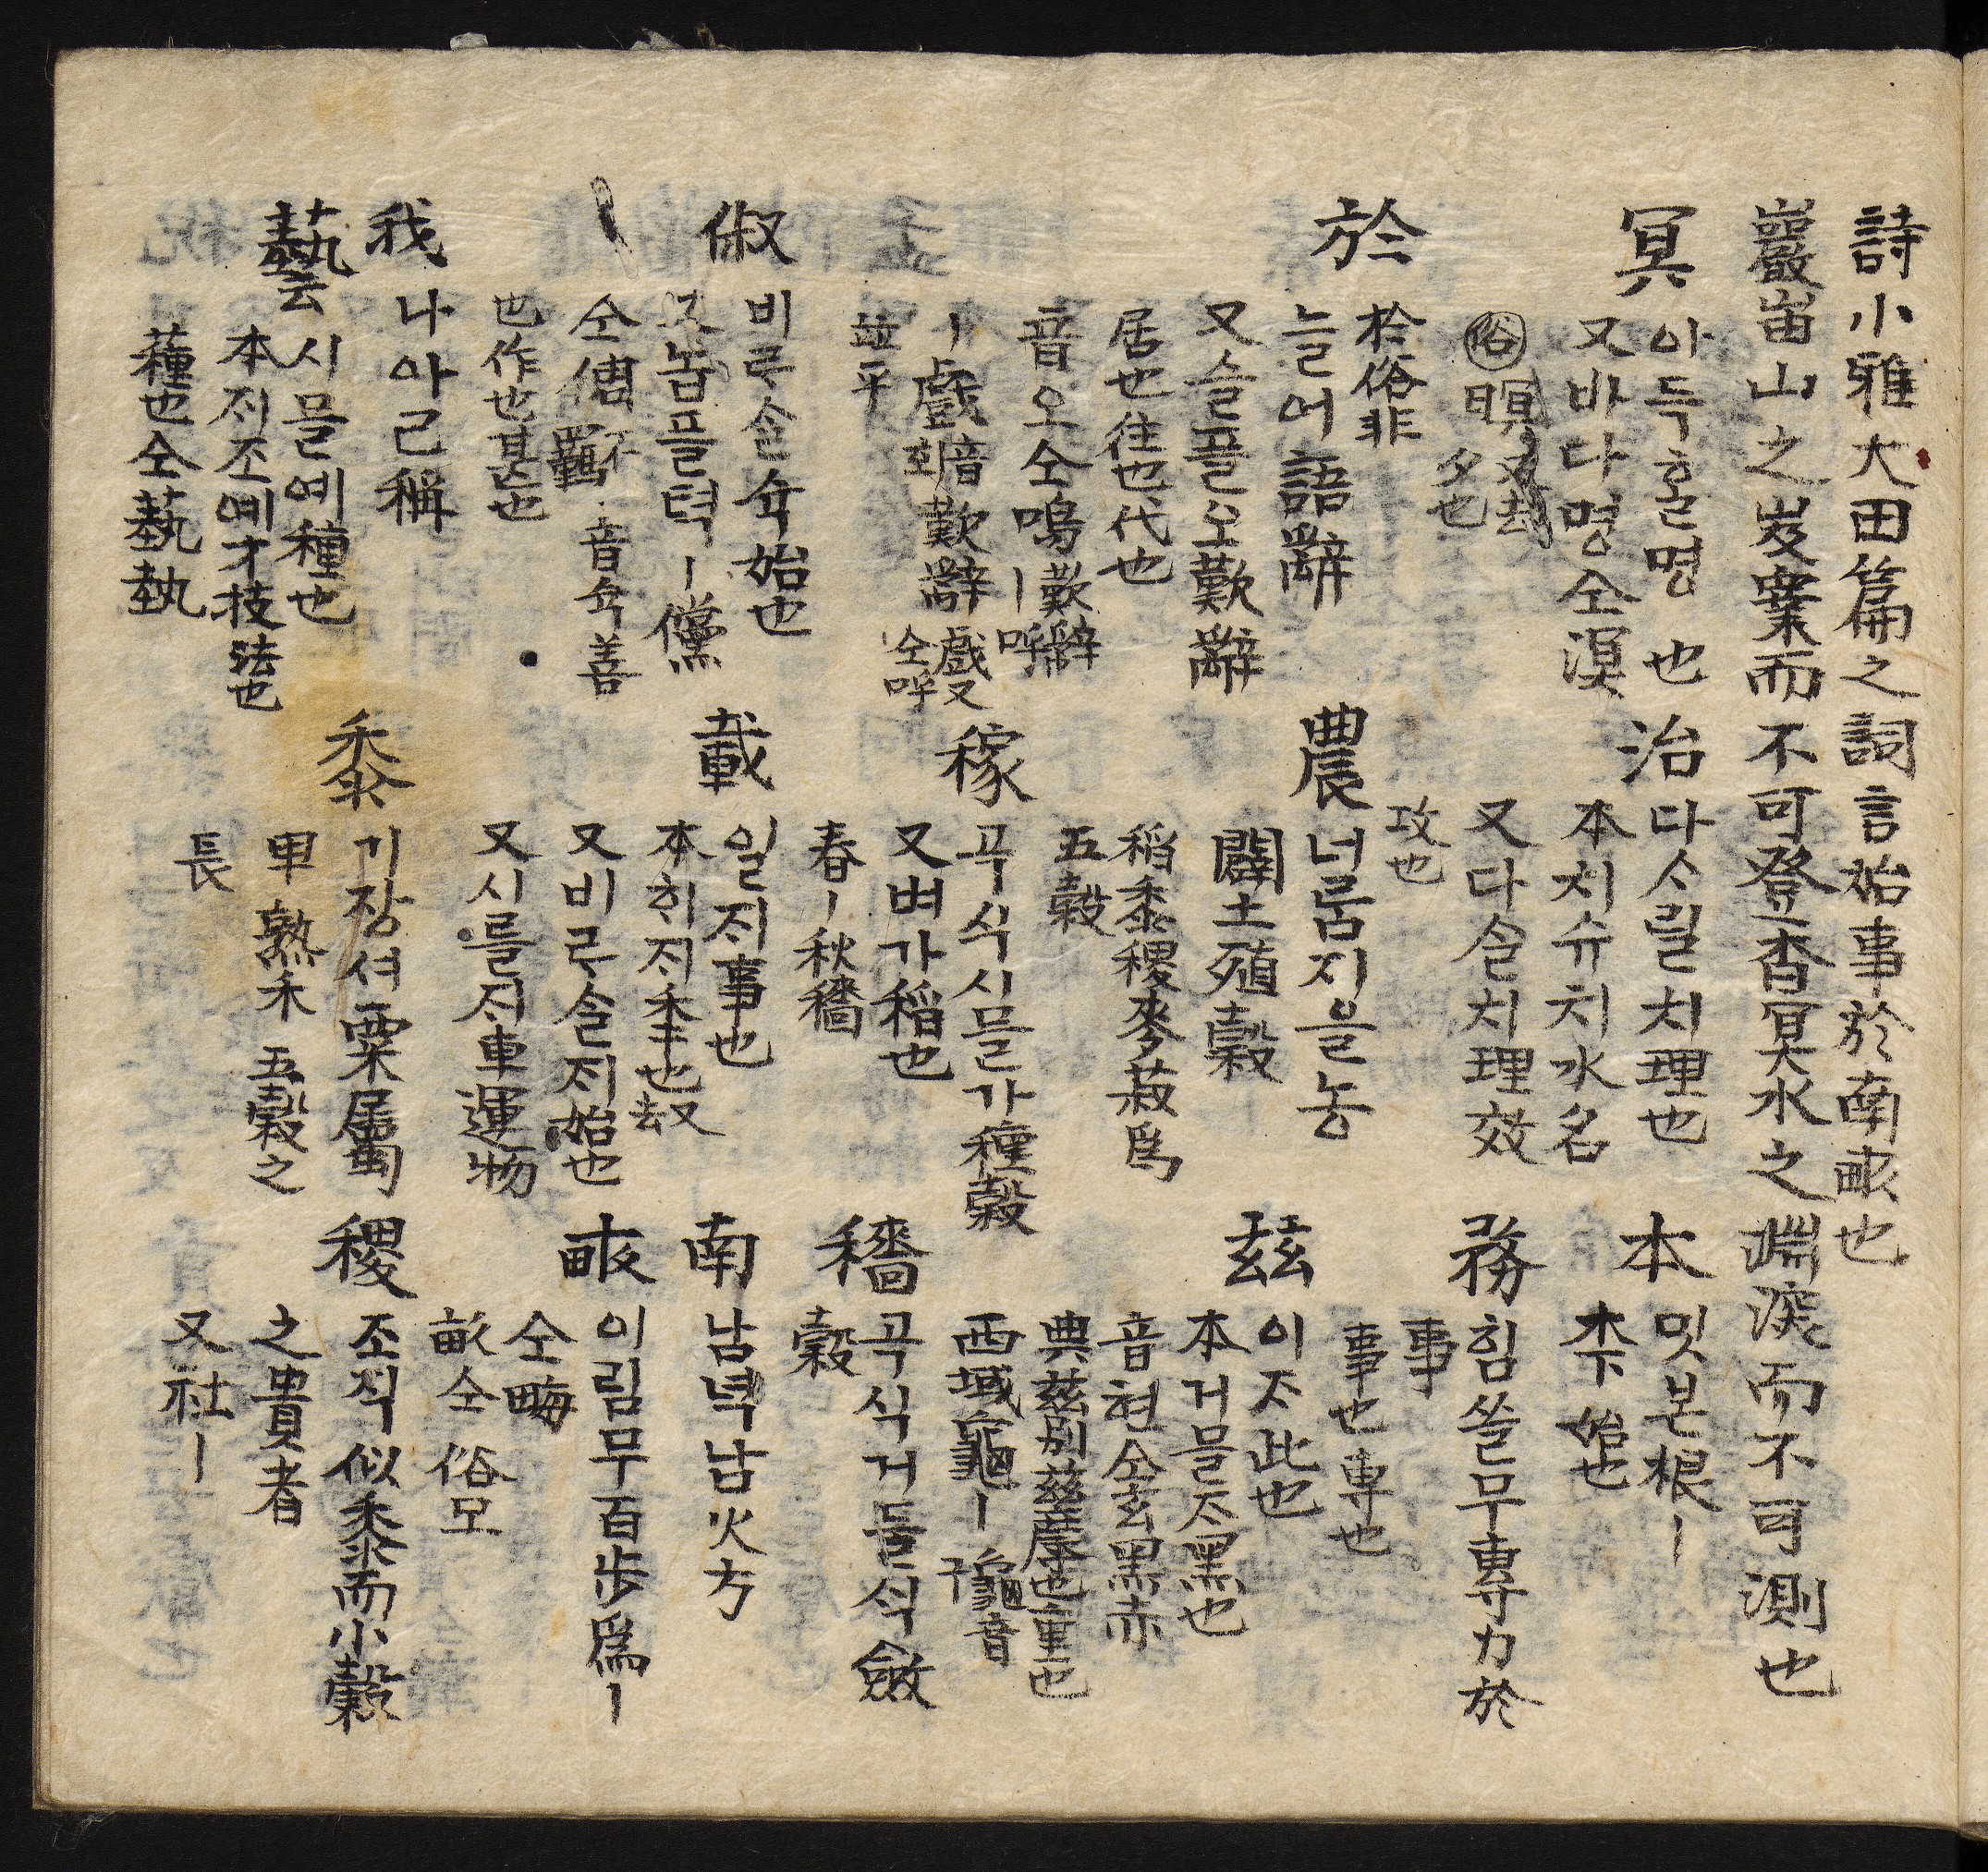 詩小雅大田篇之詞言始事於南畞也
巖峀山之岌嶪而不可登杳冥水之淵深而不可測也
冥
아두홀명 也
又바다명仝溟
俗 暝
夕也
治
다ᄉ릴치理也
本치슈치水名
又다ᄉᆞᆯ치理效
攻也
本
밋본根ㅣ
夲 始也
於
扵俗非
늘어語辭
又슬플오歎辭
居也往也代也
音오仝嗚歎辭
ㅣ呼
ㅣ戱音歎辭 戱又
仝呼
並平
農
녀름지을농
闢土殖穀
稻黍稷麥菽爲
五穀
務
힘쓸무專力於
事
事也專也
茲
이ᄌᆞ此也
本거믈ᄌᆞ黑也
音현仝玄黑赤
西域龜ㅣ
稼
곡식시믈가種穀
又벼가稻也
春ㅣ秋穡
穡
곡식거둘ᄉᆡᆨ斂
穀
俶
비ᄅᆞᄉᆞᆯ슉始也
又놉플텩ㅣ儻
音슉善
也作也甚也
載
일ᄌᆡ事也
本ᄒᆡᄌᆡ年也
又비ᄅᆞᄉᆞᆯᄌᆡ始也
又시를ᄌᆡ車運物
南
남녁남火方
畞
이림무百步爲ㅣ
仝畮
畝仝 俗모
我
나아己稱
藝
시믈예種也
本ᄌᆡ조예才技法也
種也仝蓺埶
黍
기쟝셔粟屬
甲熟禾 五穀之
長
稷
조직似黍而小穀
之貴者
又社ㅣ